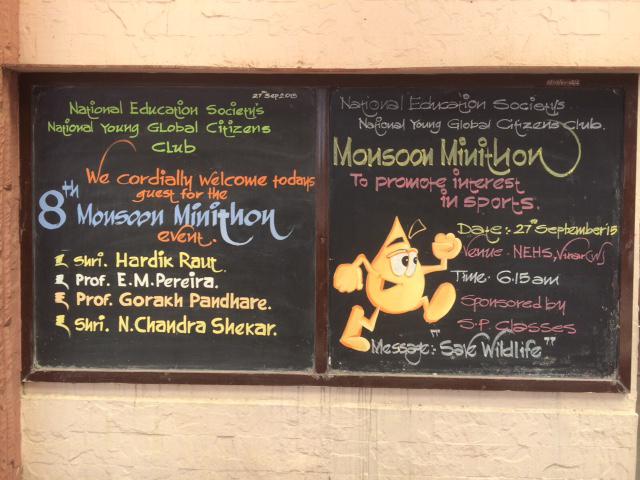 27th Sep.2015
National Education Society's
National Young Global Citizens
Club
We Cordially Welcome todays
guest for the
8th Monsoon Minithon
event.
Shri. Hardik Raut.
Prof. E.M.Pereira.
Prof. Gorakh Pandhare.
Shri. N.Chandra Shekar.
National Education Society's
National Young Global Citizens Club.
Monsoon Minithon
To promote interest
in sports.
Date:- 27th September15
Venue:- NEHS, Virar(W)
Time: 6.15am
Sponsored by
S.P. Classes
Message:- "Save Wildlife"